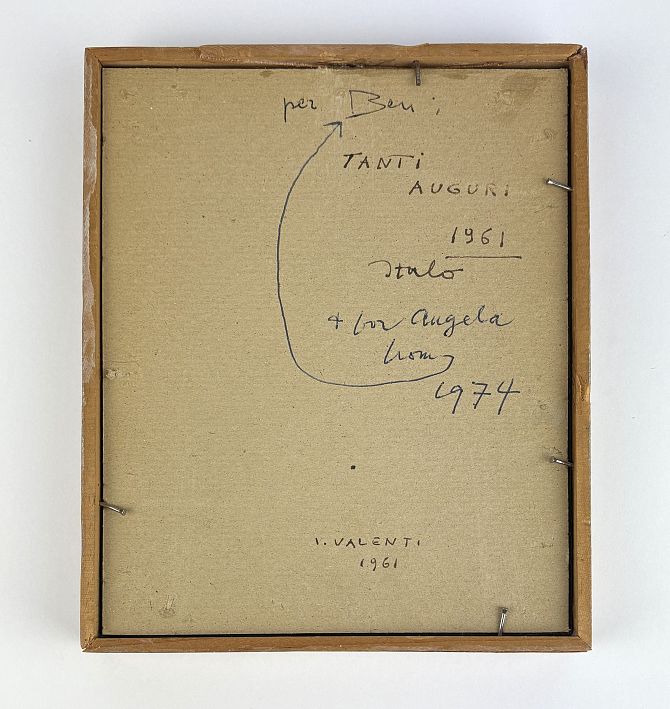 per Ben;
TANTI
AUGURI
1961
Italo
+ for Angela
from
1974
I. VALENTI
1961